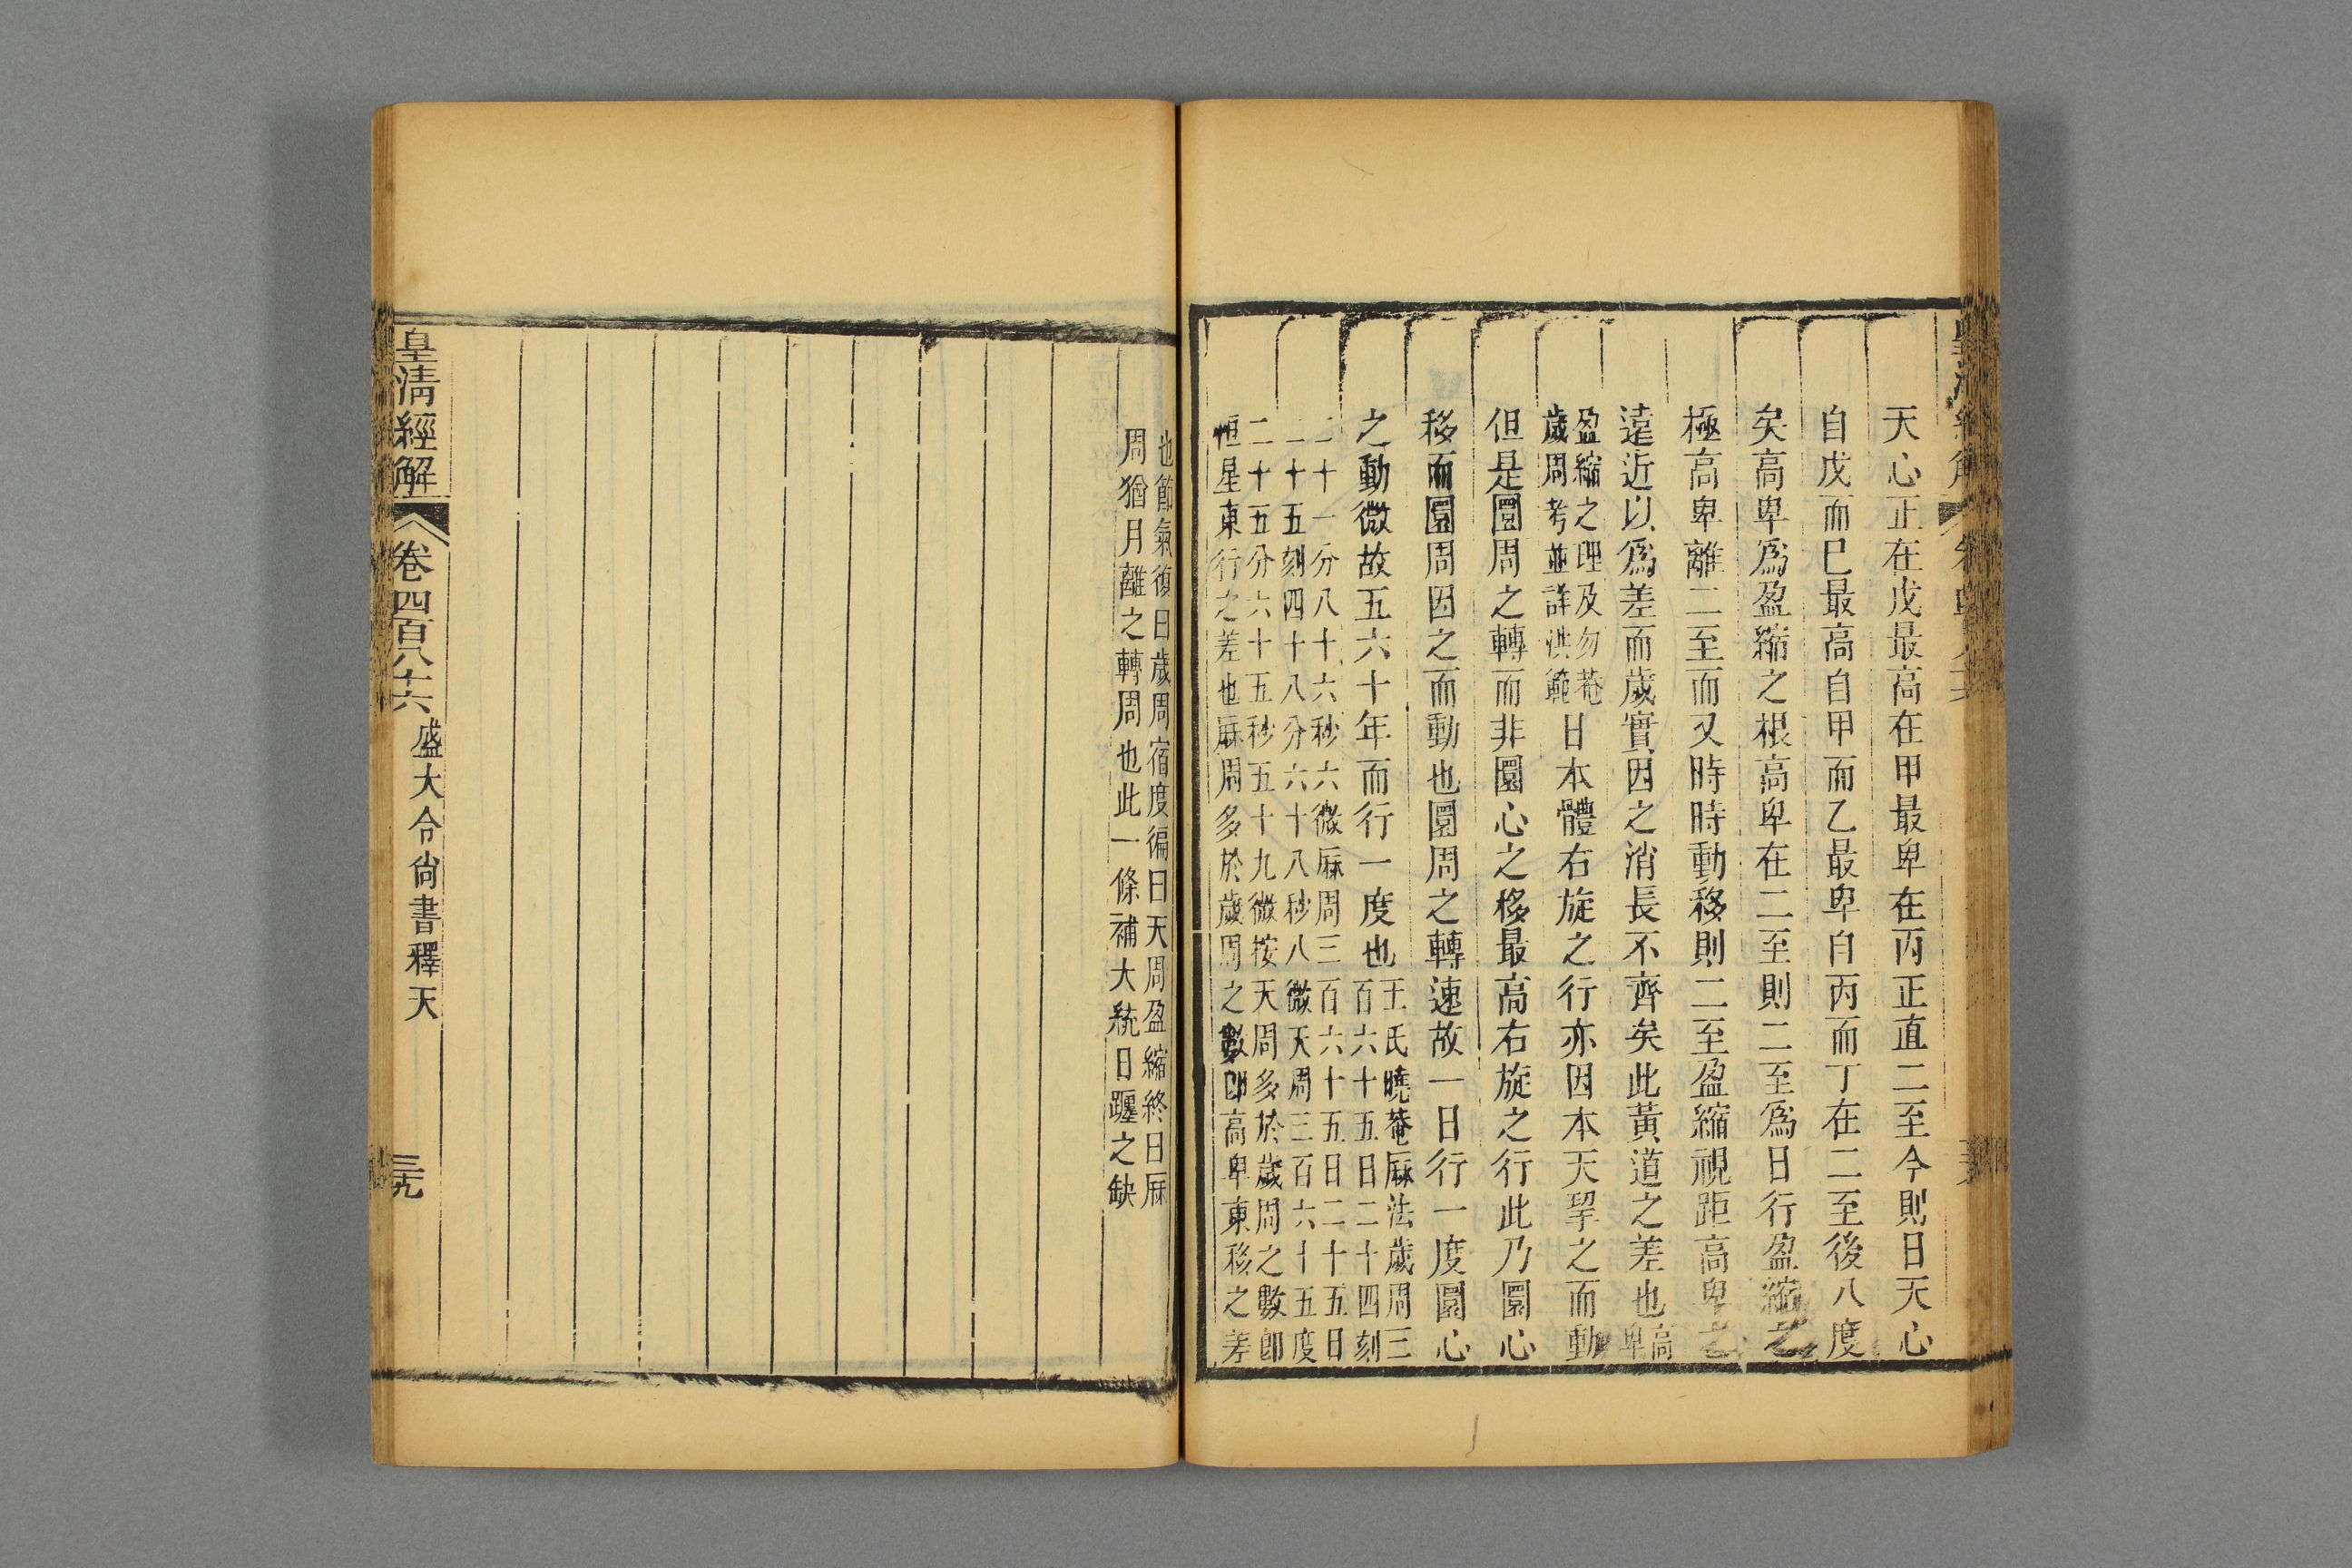 天心正在戊最高在甲最卑在丙正直二至今則日天心
自戊而巳最高自甲而乙最卑自丙而丁在二至後八度
矣高卑爲盈縮之根高卑在二至則二至爲日行盈縮之
極高卑離二至而又時時動移則二至盈縮視距高卑之
遠近以爲差而歲實因之消長不齊矣此黃道之差也高卑
盈縮之理及勿菴歲周考並詳洪範日本體右旋之行亦因本天挈之而動
但是圜周之轉而非圜心之移最高右旋之行此乃圜心
移而圜周因之而動也圜周之轉速故一日行一度圜心
之動微故五六十年而行一度也王氏曉菴厤法歲周三百六十五日二十四刻
二十一分八十六秒六微厤周三百六十五日二十五日
二十五刻四十八分六十八秒八微天周三百六十五度
二十五分六十五秒五十九微按天周多於歲周之數卽
恒星東行之差也厤周多於歲周之數卽高卑東移之差
也節氣復日歲周宿度徧日天周盈縮終日厤
周猶月離之轉周也此一條補大統日躔之缺
皇清經解 卷四百八十六 盛大令尙書釋天 三九